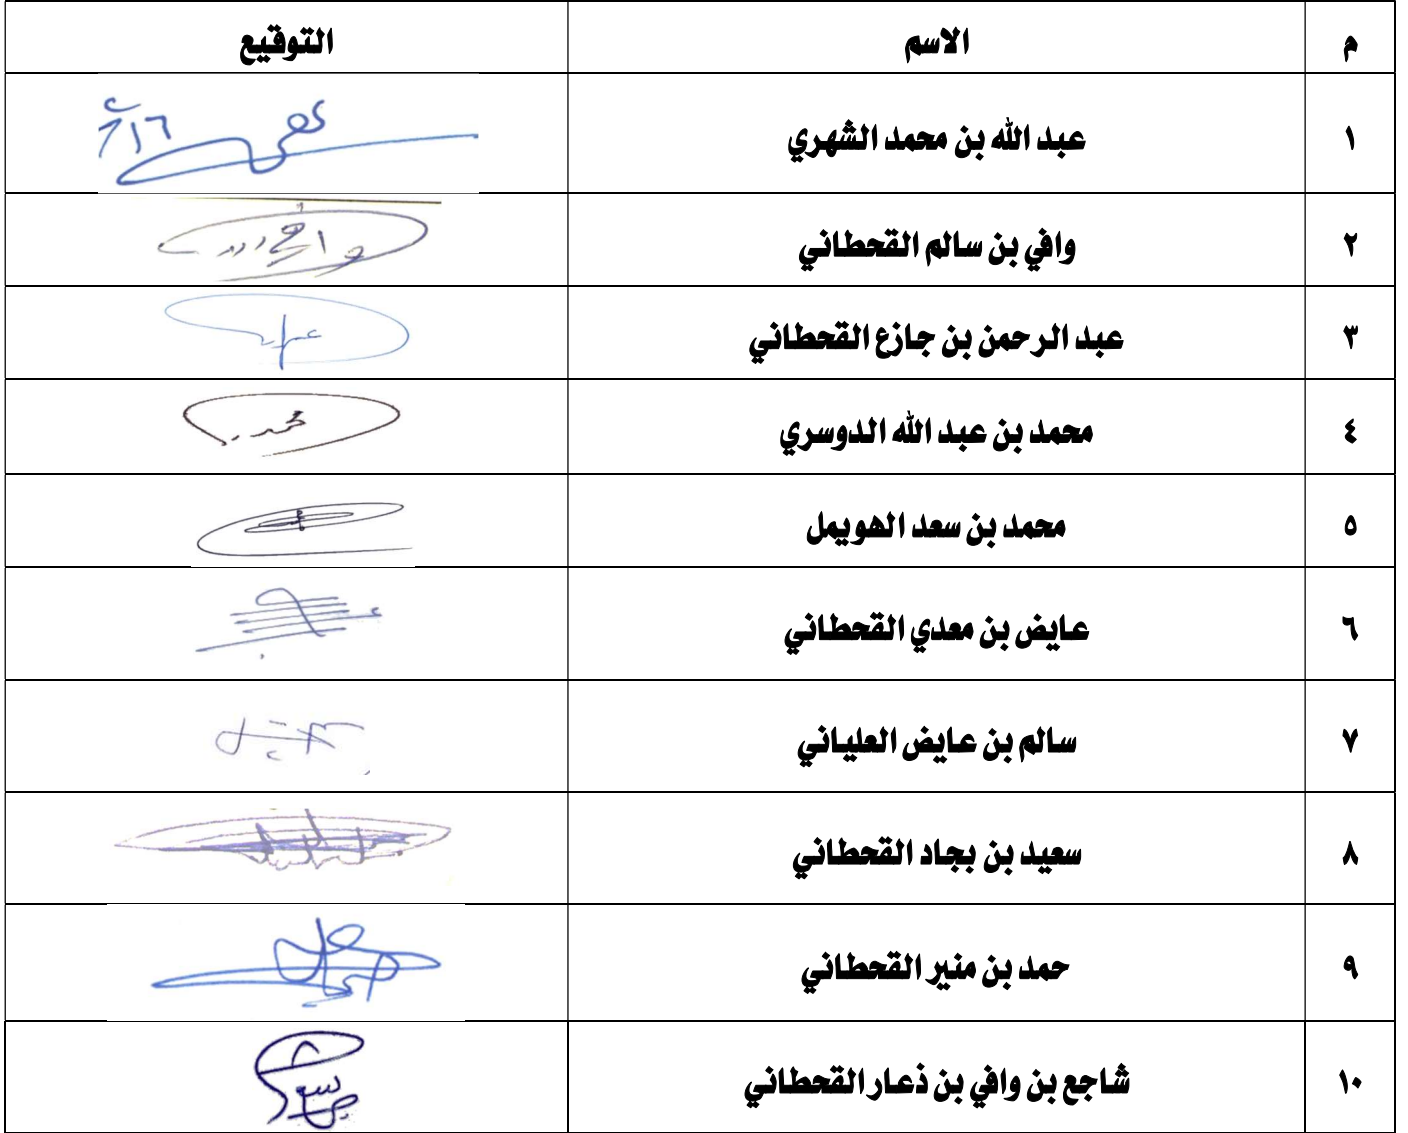 م الاسم التوقيع
١ عبد الله بن محمد الشهري
٢ وافي بن سالم القحطاني
٣ عبد الرحمن بن جازع القحطاني
٤ محمد بن عبد الله الدوسري محمد
٥ محمد بن سعد الهويمل
٦ عايض بن معدي القحطاني
٧ سالم بن عايض العلياني
٨ سعيد بن بجاد القحطاني
٩ حمد بن منير القحطاني
١٠ شاجع بن وافي بن ذعار القحطاني